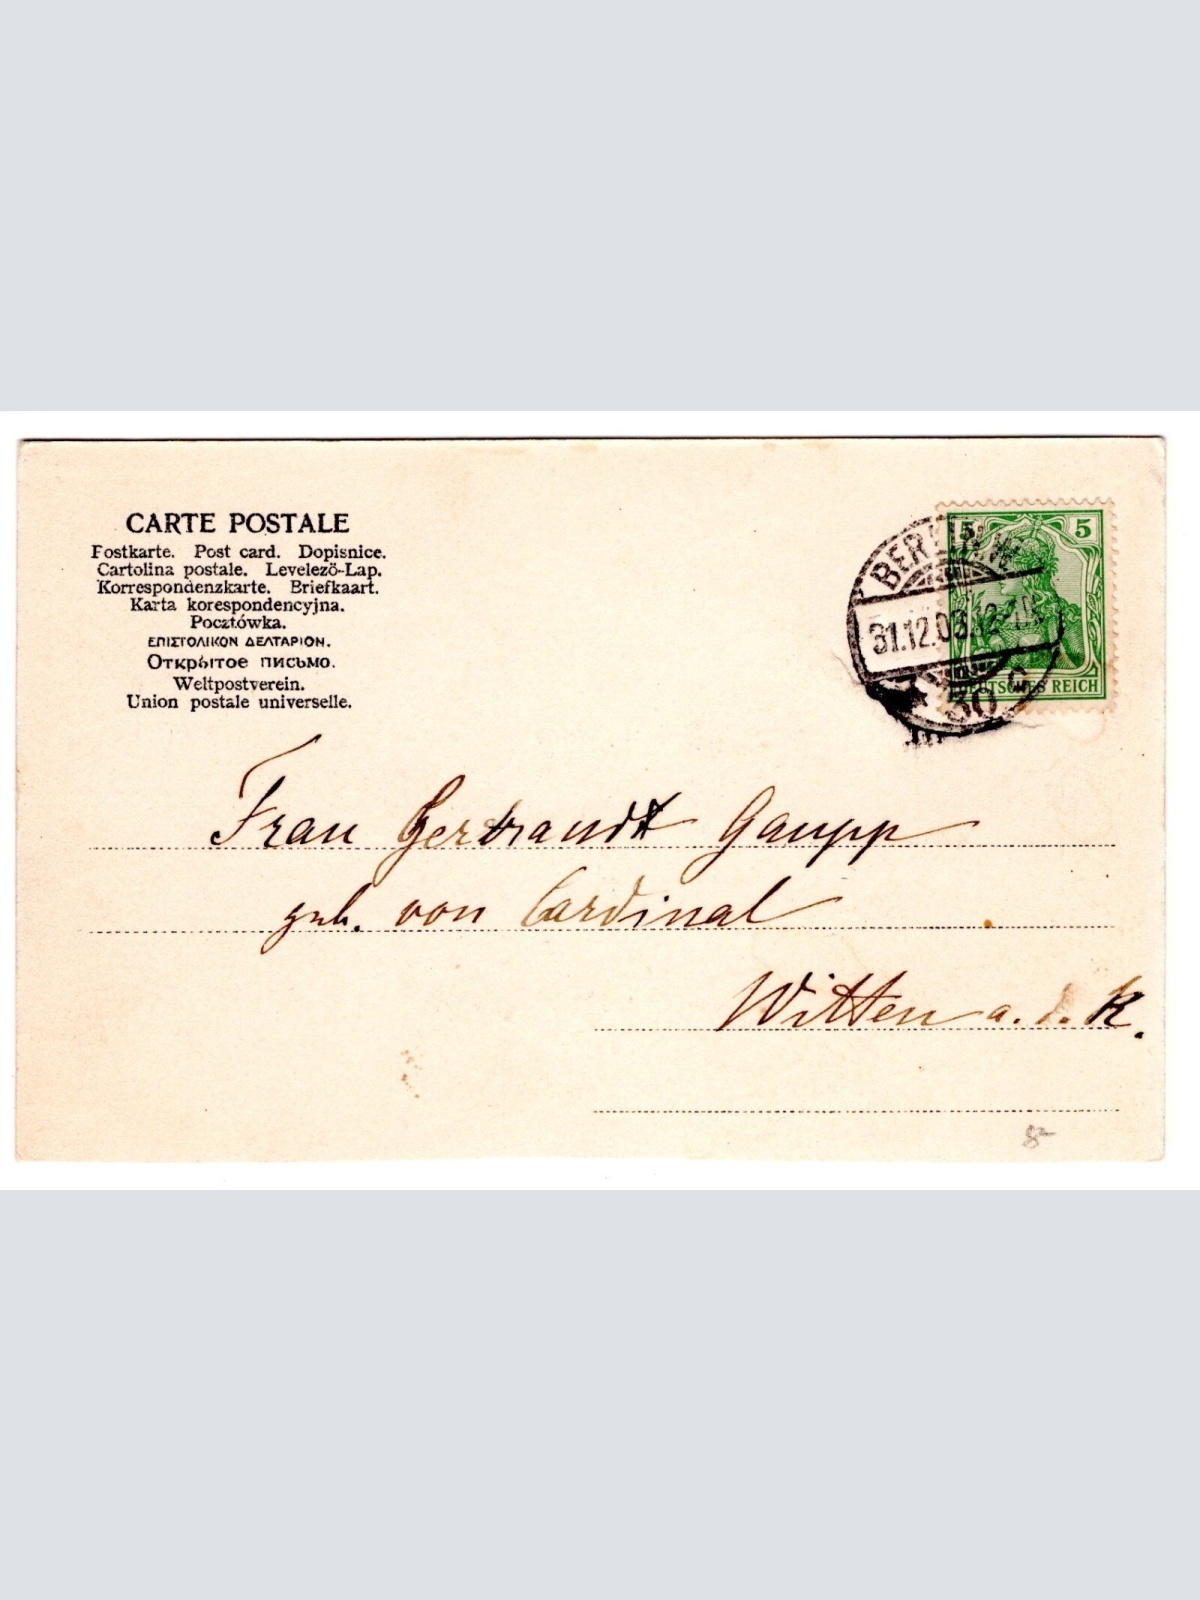 CARTE POSTALE
Postkarte. Post card. Dopisnice.
Cartolina postale. Levelező-Lap.
Korrespondenzkarte. Briefkaart.
Karta korespondencyjna.
Pocztówka.
ΕΠΙΣΤΟΛΙΚΟΝ ΔΕΛΤΑΡΙΟΝ.
Открытое письмо.
Weltpostverein.
Union postale universelle.
5 5
DEUTSCHES REICH
BERLIN
31.12.03.12-1
30
Frau Gertraudt Gaupp
geb. von Cardinal
Witten a. d. R.